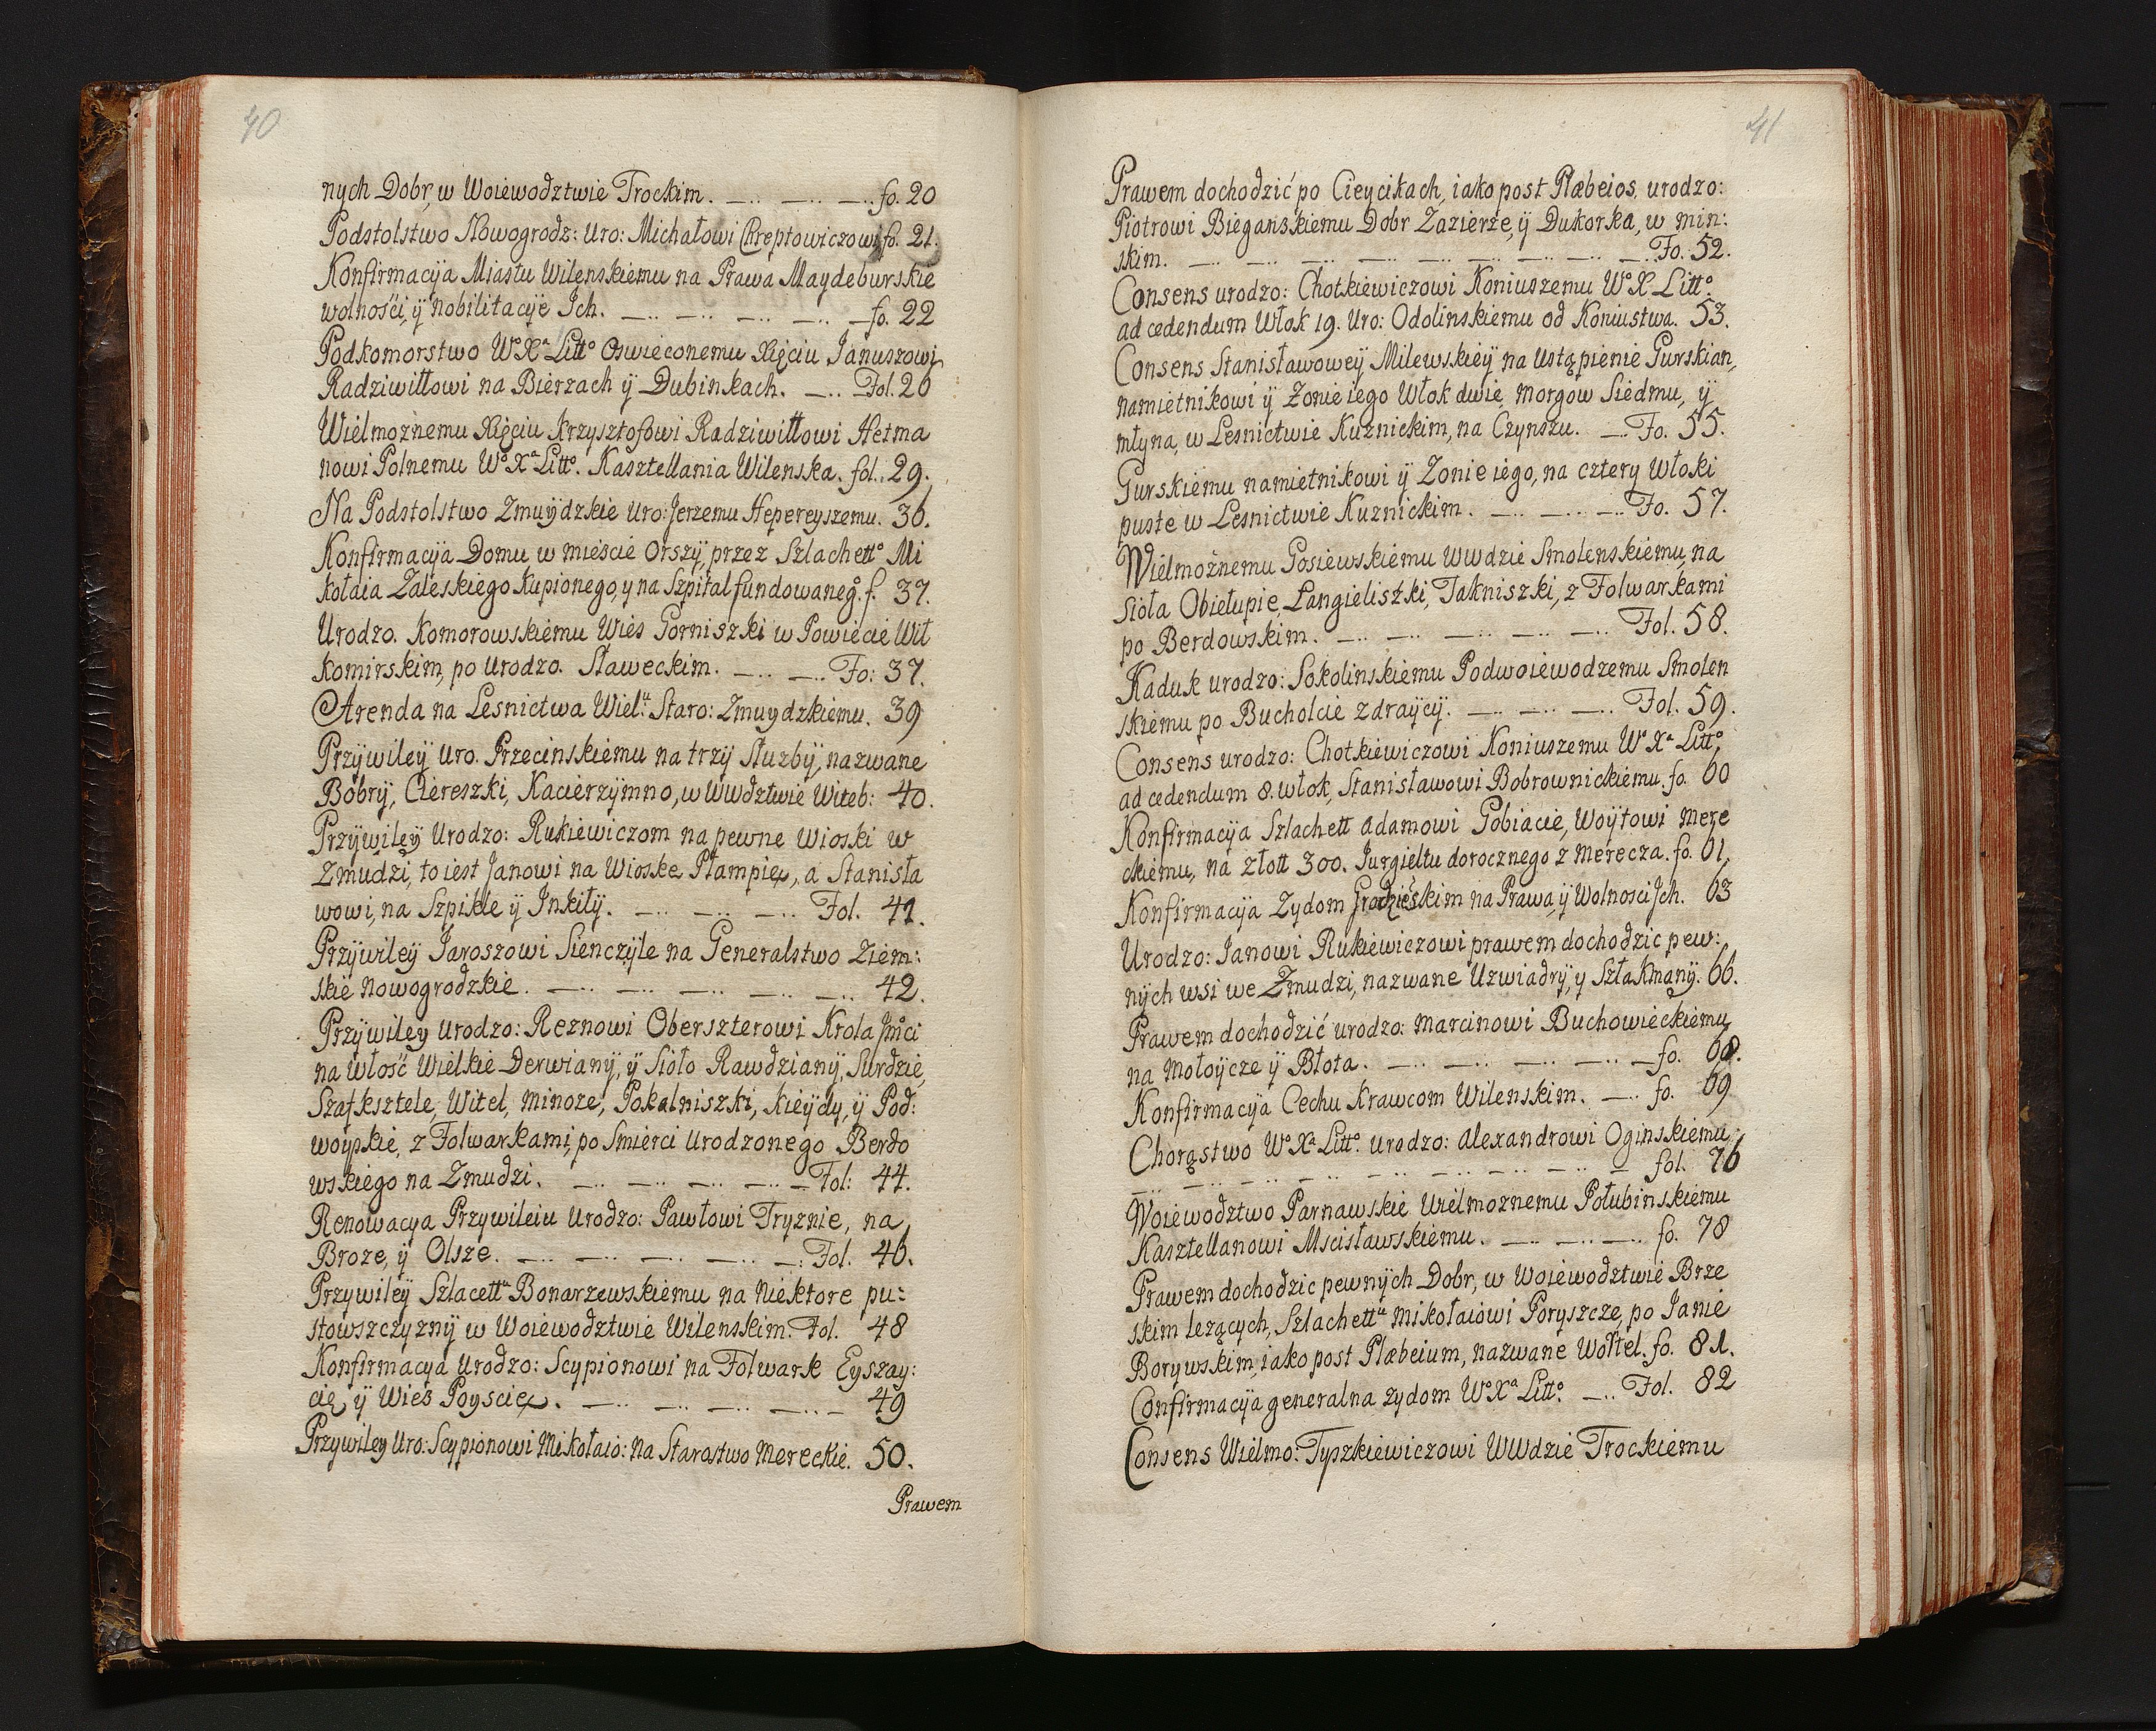 40
nych Dobr, w Woiewodztwie Trockim. _.. _.. _.. fo. 20
Podstolstwo Nowogrodz: Uro: Michałowi Chreptowiczowi fo. 21.
Konfirmacÿa Miastu Wilenskiemu na Prawa Maydeburskie
wolności, ÿ nobilitacÿe Jch. _.. _.. _.. _.. _ fo. 22
Podkomorstwo Wº Xª Littº Oswieconemu Xięciu Januszowi
Radziwiłłowi na Bierzach ÿ Dubinkach. _.. _ Fol. 26
Wielmożnemu Xięciu Krzysztofowi Radziwiłłowi Hetma
nowi Polnemu Wº Xª Littº. Kasztellania Wilenska. fol. 29.
Na Podstolstwo Zmuÿdzkie Uro: Jerzemu Hepereyszemu. 36.
Konfirmacÿa Domu w mieście Orszÿ, przez Szlachettº Mi
kołaia Zaleskiego Kupionego, y na Szpital fundowaneg°. f. 37.
Urodzo. Komorowskiemu Wies Gorniszki w Powiecie Wił
komirskim, po Urodzo. Sławeckim. _.. _.. Fo: 37.
Arenda na Lesnictwa Wielᵘ: Staro: Zmuydzkiemu. 39
Przÿwileÿ Uro. Przecinskiemu na trzÿ Służbÿ, nazwane
Bobrÿ, Ciereszki, Kacierzÿmno, w Wwdztwie Witeb: 40.
Przÿwileÿ Urodzo: Rukiewiczom na pewne Wioski w
Zmudzi, to iest Janowi na Wioske Płampie, a Stanisła
wowi, na Szpikle ÿ Jnkiłÿ. _.. _.. _.. Fol. 41.
Przÿwileÿ Jaroszowi Sienczÿle na Generalstwo Ziem:
skie Nowogrodzkie. _.. _.. _.. _.. _.. 42.
Przÿwileÿ Urodzo: Reznowi Oberszterowi Krola Jmści
na Włość Wielkie Derwianÿ, ÿ Sioło Rawdzianÿ, Surdzie,
Szafksztele, Witel, Minoze, Pokalniszki, Kieÿdy, ÿ Pod:
woÿpkie, z Folwarkami, po Smierci Urodzonego Berdo
wskiego na Zmudzi. _.. _.. _.. _.. _ Fol: 44.
Renowacya Przywileiu Urodzo: Pawłowi Tryznie, na
Broze, ÿ Olsze. _.. _.. _.. _.. _. Fol. 46.
Przywileÿ Szlacettᵘ Bonarzewskiemu na Niektore pu:
stowszczyznÿ w Woiewodztwie Wilenskim. Fol. 48
Konfirmacya Urodzo: Scypionowi na Folwark Eyszay:
cię ÿ Wieś Poyscie. _.. _.. _.. _.. _ 49
Przywiley Uro: Scypionowi Mikołaio: na Starostwo Mereckie. 50.
Prawem
41
Prawem dochodzić po Cieycikach, iako post Plæbeios, urodzo:
Piotrowi Biegańskiemu Dobr Zazierze, ÿ Dukorka, w min:
skim. _.. _.. _.. _.. _.. _.. _.. _.. Fo. 52.
Consens urodzo: Chotkiewiczowi Koniuszemu Wº X Littº.
ad cedendum Włok 19. Uro: Odolinskiemu od Koniustwa. 53.
Consens Stanisławoweÿ Milewskieÿ na Ustąpienie Gurskian,
namietnikowi ÿ Zonie iego Włok dwie, morgow Siedmu, ÿ
młyna, w Lesnictwie Kuznickim, na Czynszu. _.. Fo. 55.
Gurskiemu namietnikowi ÿ Zonie iego, na cztery Włoki
puste w Lesnictwie Kuznickim. _.. _.. _.. Fo. 57.
Wielmożnemu Gosiewskiemu Wwdzie Smolenskiemu, na
Sioła Obiełupie, Langieliszki, Takniszki, z Folwarkami
po Berdowskim. _.. _.. _.. _.. _.. Fol. 58.
Kaduk urodzo: Sokolinskiemu Podwoiewodzemu Smolen
skiemu po Bucholcie zdraÿcÿ. _.. _.. _.. Fol. 59.
Consens urodzo: Chotkiewiczowi Koniuszemu Wº Xª Littº.
ad cedendum 8. włok, Stanisławowi Bobrownickiemu. fo. 60
Konfirmacÿa Szlachett Adamowi Gobiacie, Woÿtowi Mere
ckiemu, na złott 300. Jurgieltu dorocznego z Merecza. fo. 61.
Konfirmacÿa Zydom Grodzieńskim na Prawa, ÿ Wolnosci Jch. 63
Urodzo: Janowi Rukiewiczowi prawem dochodzic pew:
nÿch wsi we Zmudzi, nazwane Uzwiadrÿ, y Szłakmanÿ. 66.
Prawem dochodzić urodzo: Marcinowi Buchowieckiemu
na Mołoÿcze ÿ Błota. _.. _.. _.. _.. _ fo. 68.
Konfirmacÿa Cechu Krawcom Wilenskim. _.. fo. 69
Chorąstwo Wº Xª Littº. urodzo: Alexandrowi Oginskiemu
_.. _.. _.. _.. _.. _.. _.. _ fol. 76
Woiewodztwo Parnawskie Wielmożnemu Połubinskiemu
Kasztellanowi Mscisławskiemu. _.. _.. _.. fo. 78
Prawem dochodzic pewnÿch Dobr, w Woiewodztwie Brze
skim leżących, Szlachettᵘ Mikołaiowi Poryszcze, po Janie
Borywskim, iako post Plæbeium, nazwane Wołtel. fo. 81.
Confirmacÿa generalna zydom Wº Xª Littº. _.. Fol. 82
Consens Wielmo: Tyszkiewiczowi WWdzie Trockiemu